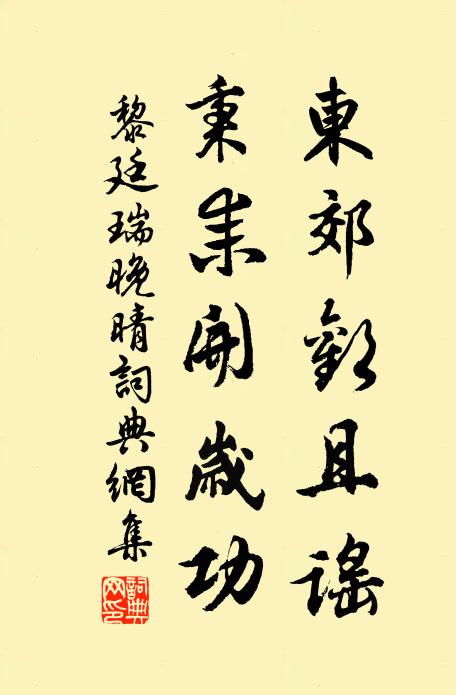 東郊歡且謠
秉耒開歲功
黎廷瑞晚晴詞典網集
詞典網印